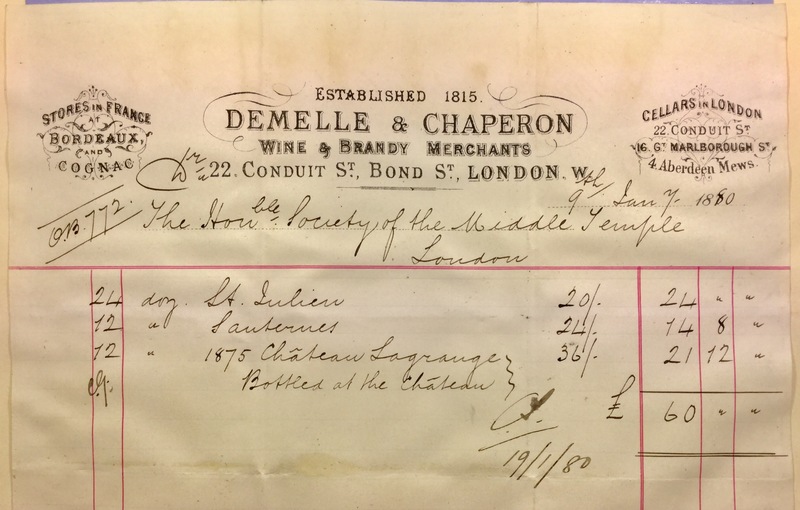 STORES IN FRANCE
AT
BORDEAUX,
AND
COGNAC
ESTABLISHED 1815.
DEMELLE & CHAPERON
WINE & BRANDY MERCHANTS
22. CONDUIT ST, BOND ST, LONDON. W.
CELLARS IN LONDON
22 CONDUIT ST
16. GT MARLBOROUGH ST
4 Aberdeen Mews.
Dr
9th Jany. 1880
O.B. 772.
The Honble Society of the Middle Temple
London
24 doz. St. Julien 20/- 24 " "
12 " Sauternes 24/- 14 8 "
12 " 1875 Château Lagrange 36/- 21 12 "
Bottled at the Château
£ 60 " "
19/1/80